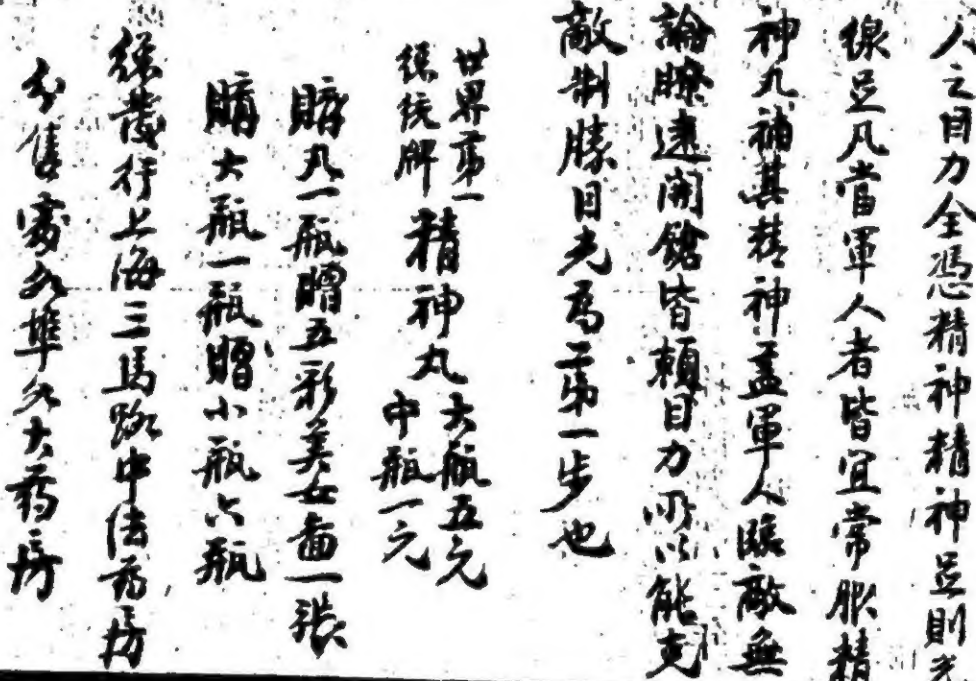 人之目力全憑精神精神足則光
線足凡當軍人者皆宜常服精
神丸補其精神蓋軍人臨敵無
論瞭遠開鎗皆賴目力所以能克
敵制勝目光爲第一步也
世界第一
總統牌
精神丸
大瓶五元
中瓶一元
購丸一瓶贈五彩美女畫一張
購大瓶一瓶贈小瓶六瓶
總發行上海三馬路中法药房
分售處各埠各大药房